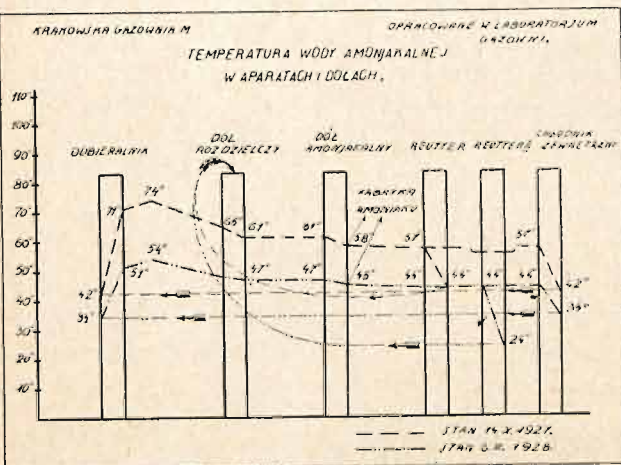 KRAKOWSKA GAZOWNIA M
OPRACOWANE W LABORATORJUM
GAZOWNI.
TEMPERATURA WODY AMONJAKALNEJ
W APARATACH I DOŁACH.
110°
100°
90°
80°
70°
60°
50°
40°
30°
20°
10°
ODBIERALNIK
DÓŁ
ROZDZIELCZY
DÓŁ
AMONJAKALNY
REUTTER
REUTTER
CHŁODNIK
ZEWNĘTRZNY
FABRYKA
AMONIAKU
71°
74°
65°
61°
61°
58°
57°
42°
51°
54°
47°
47°
45°
44°
44°
44°
44°
42°
34°
24°
34°
STAN 14 X. 1927.
1928